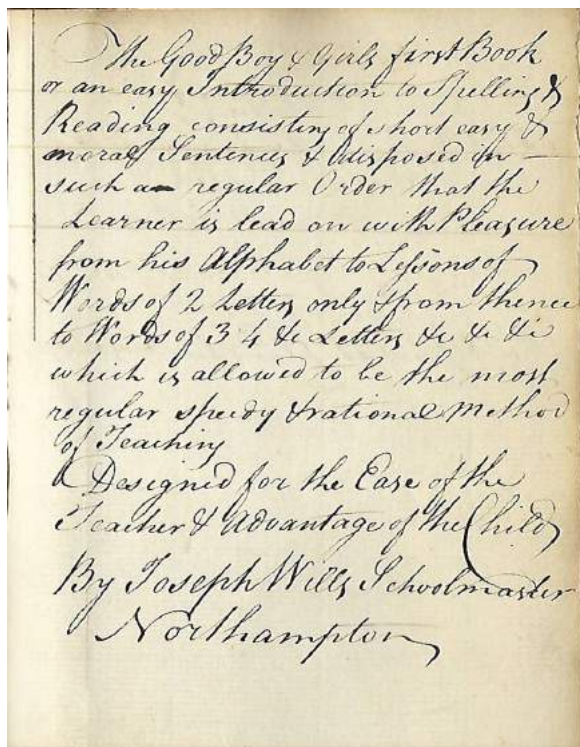 The Good Boy & Girls first Book
or an easy Introduction to Spelling &
Reading consisting of short easy &
moral Sentences & disposed in —
such a regular Order that the
Learner is lead on with Pleasure
from his Alphabet to Lessons of
Words of 2 Letters only & from thence
to Words of 3 4 &c Letters &c &c &c
which is allowed to be the most
regular speedy & rational Method
of Teaching
Designed for the Ease of the
Teacher & Advantage of the Child
By Joseph Wills Schoolmaster
Northampton